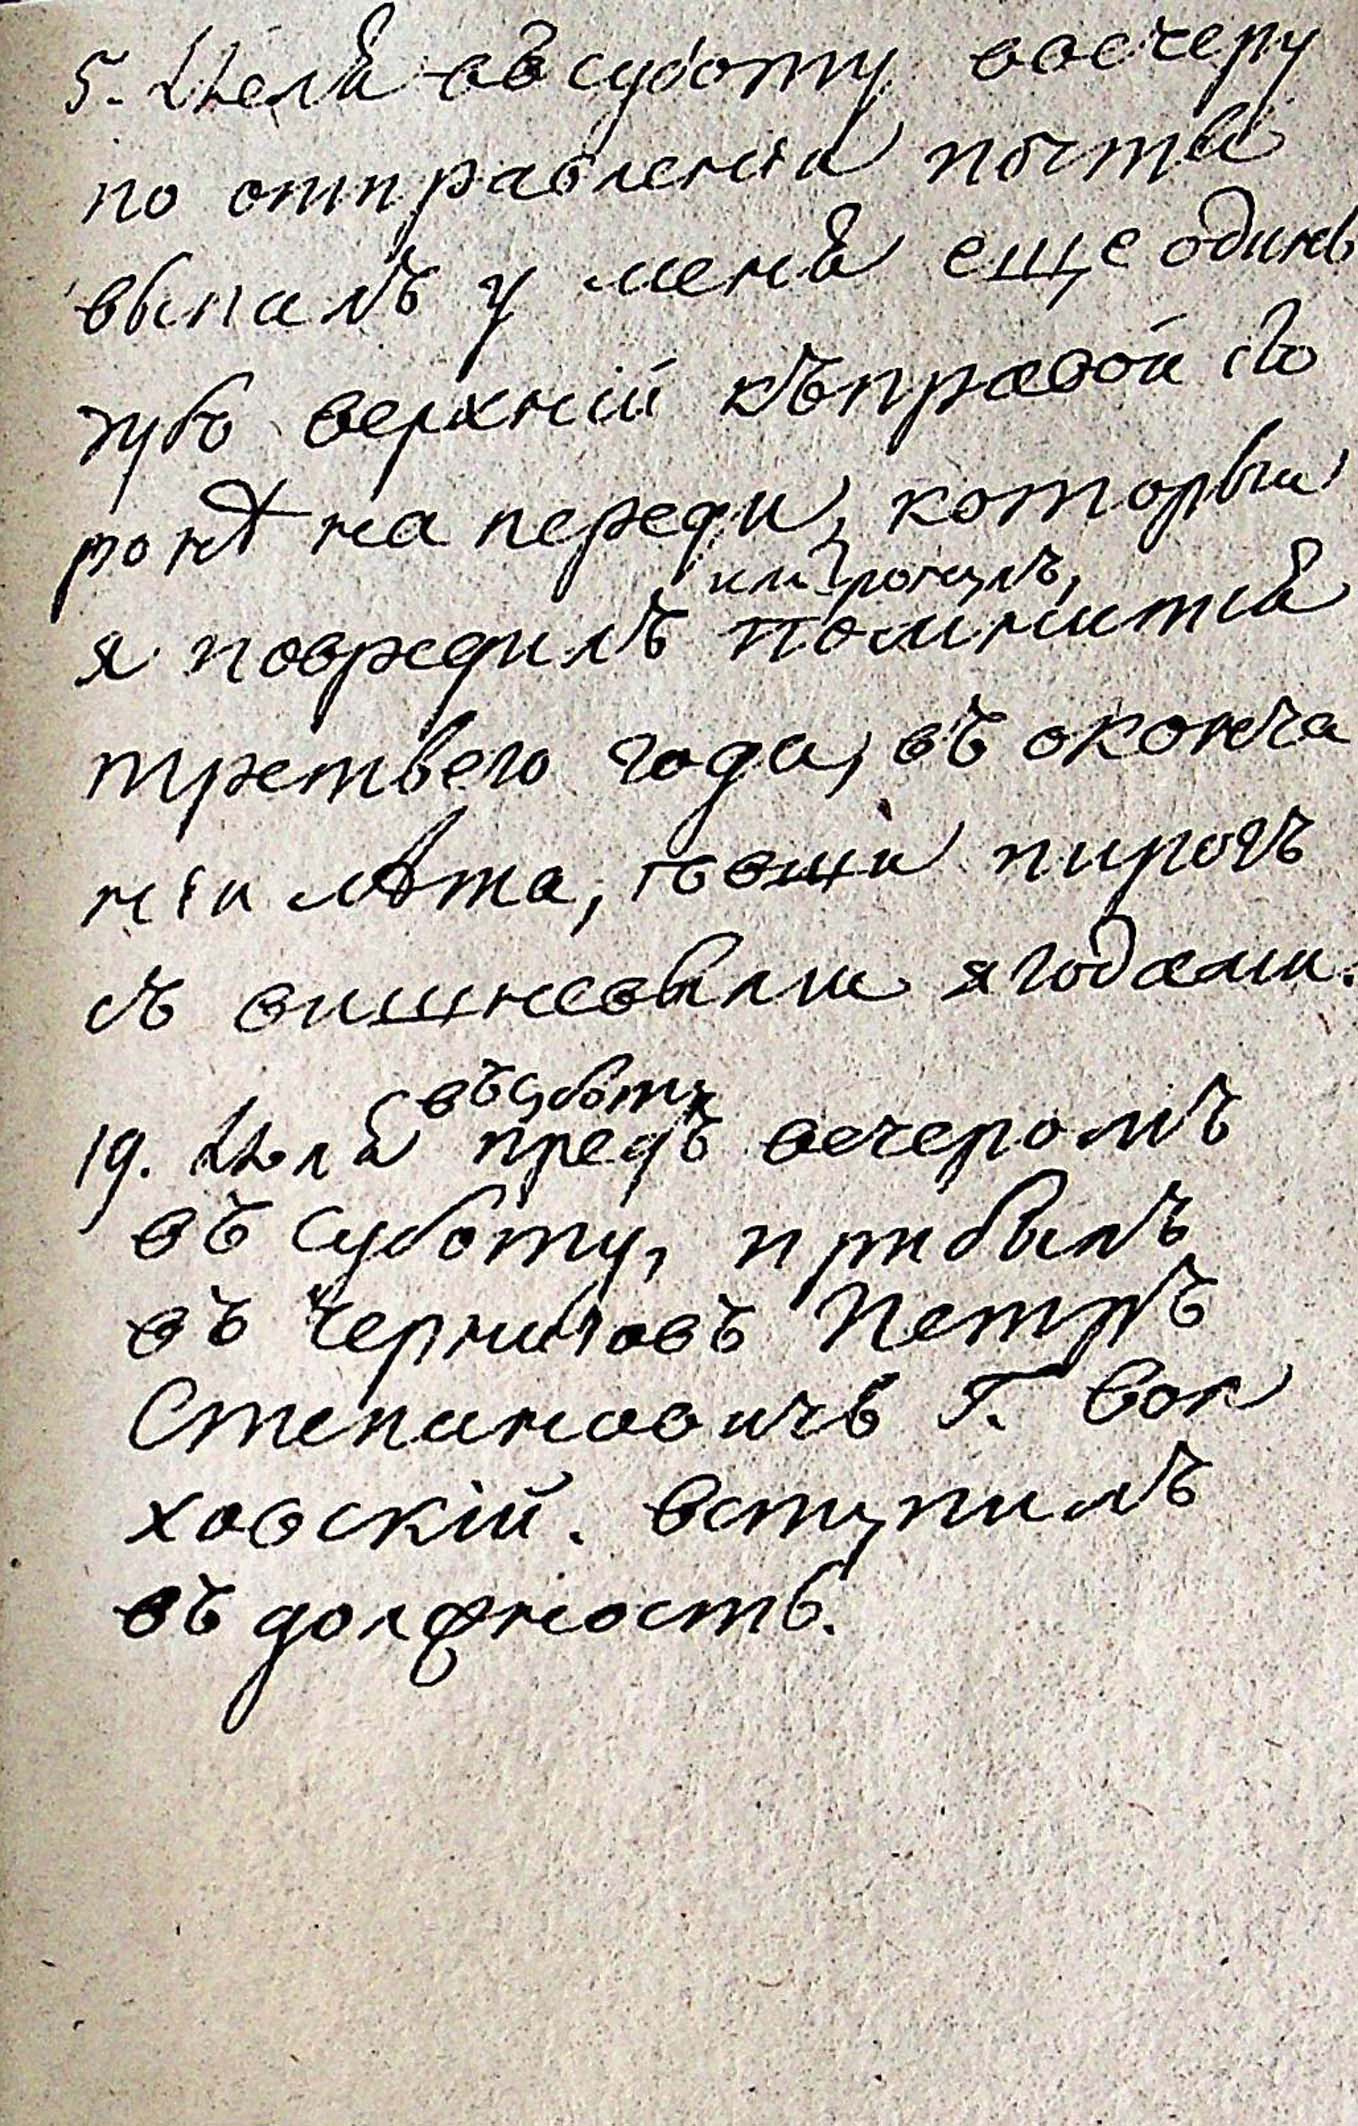 5. Июля въ суботу ввечеру
по отправленіи почты
выпалъ у меня еще одинъ
зубъ верхній къ правой сто
ронѣ на переди, который
или тронулъ,
я повредилъ помнится
третьего года, въ оконча
ніи лѣта, ѣвши пирогъ
съ вишневыми ягодами.
въ суботу
19. Июля предъ вечеромъ
въ суботу, прибылъ
въ Черниговъ Петръ
Степановичъ Г. Вол
ховскій. Вступилъ
въ должность.